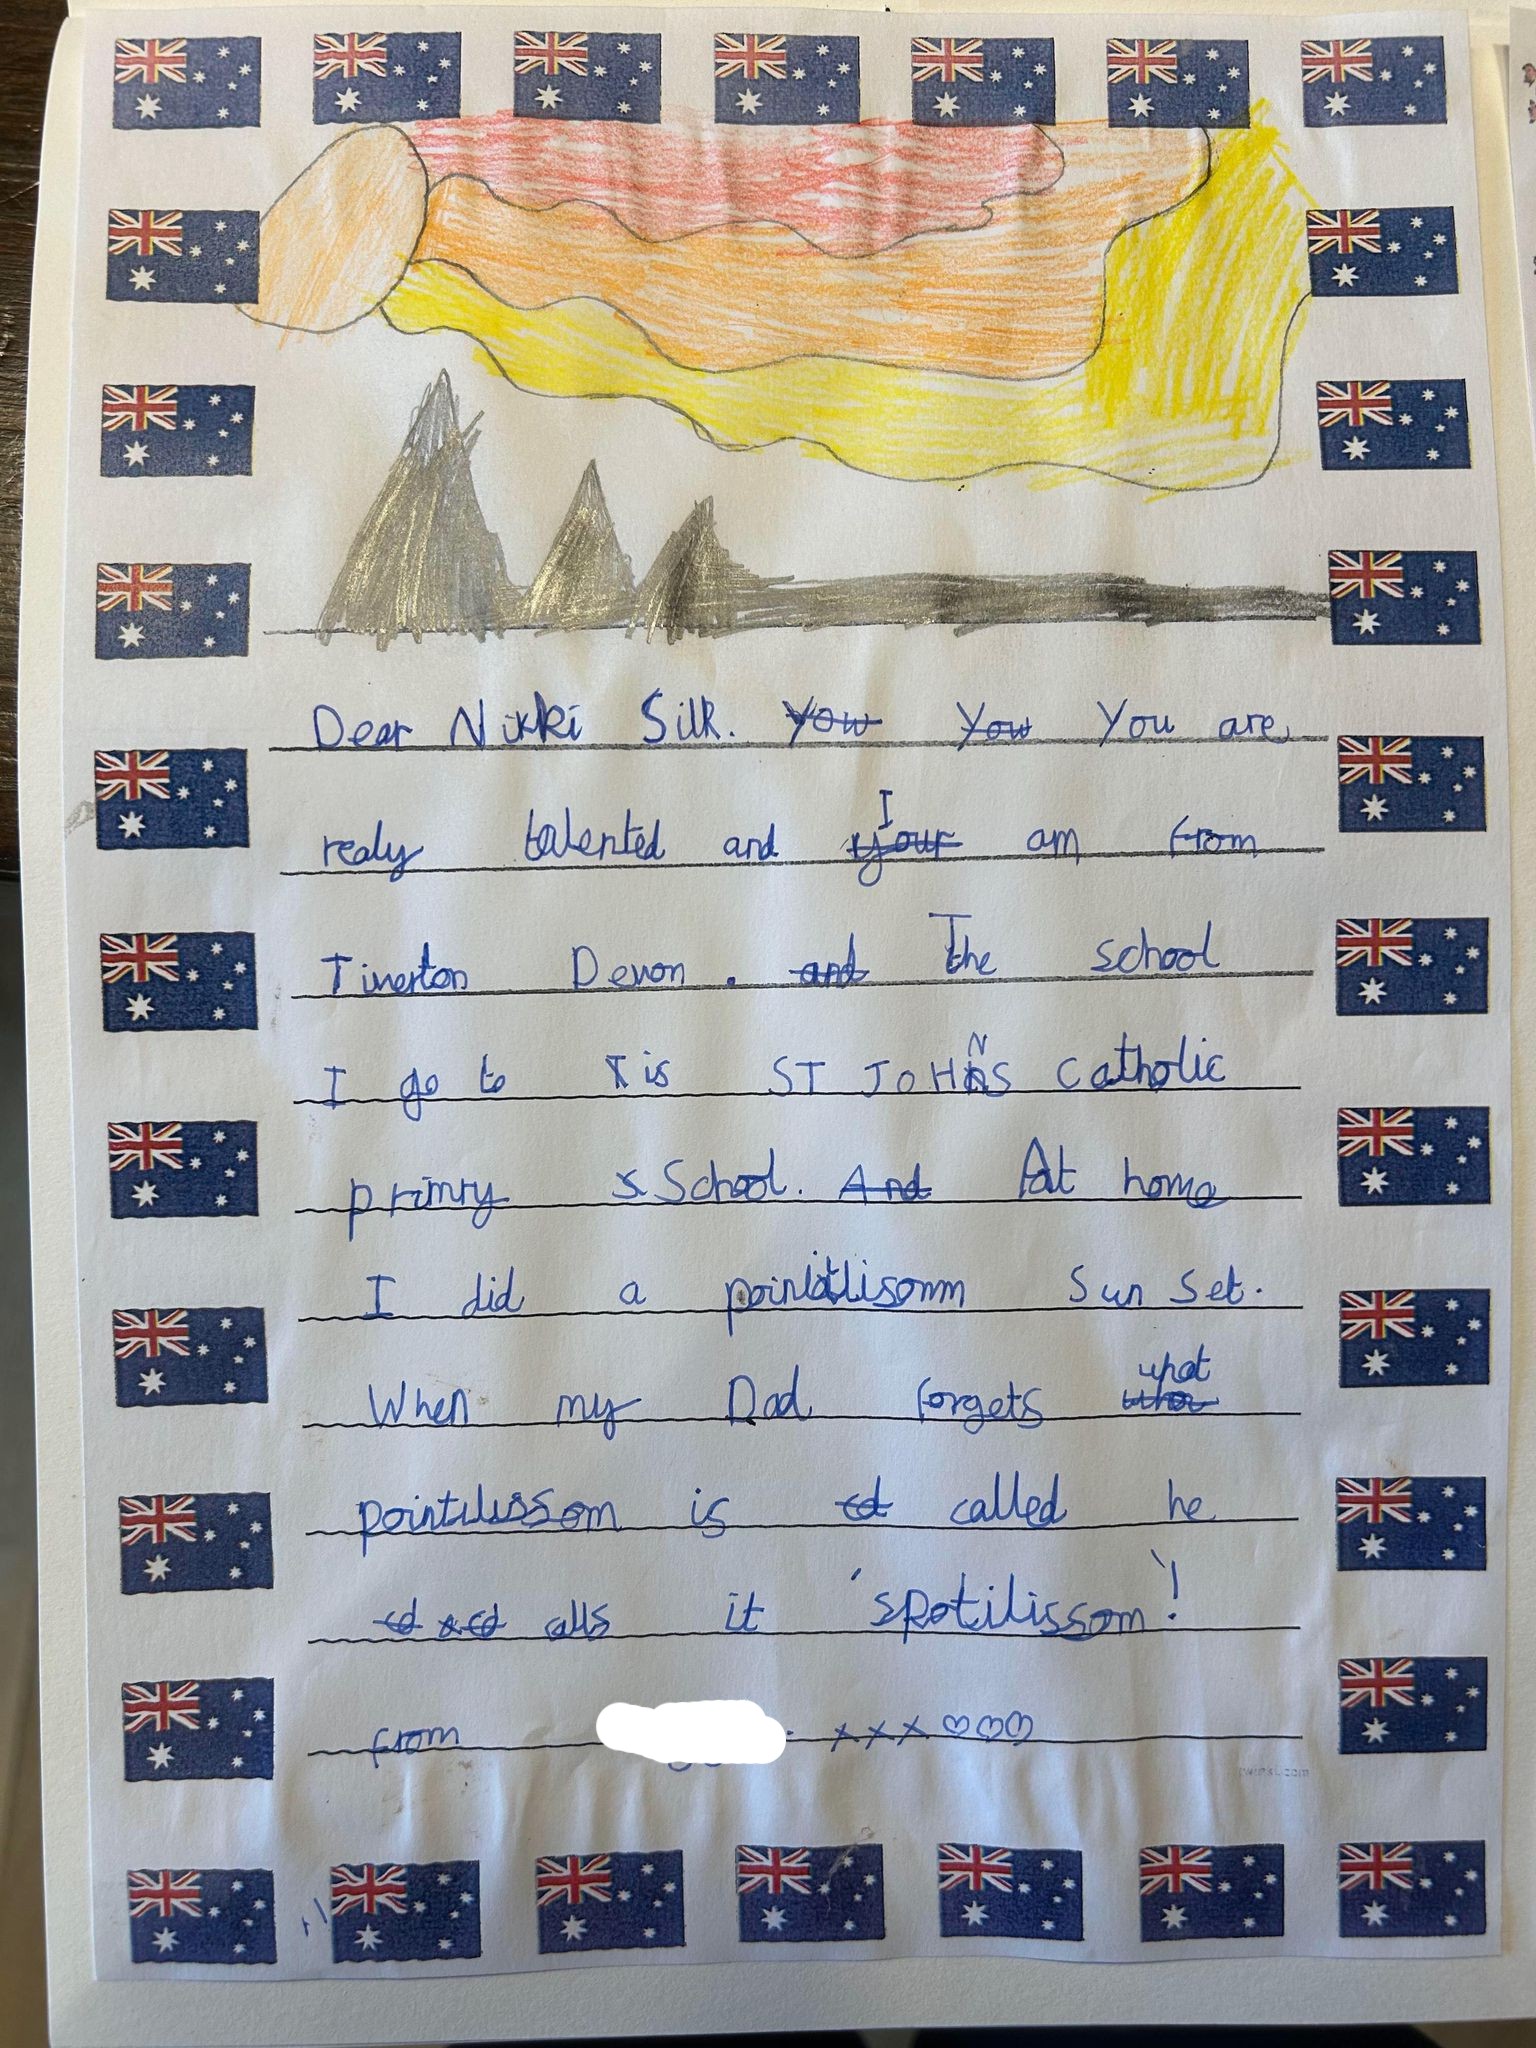 Dear Nikki Silk. You You You are
realy talented and your I am from
Tiverton Devon. and The school
I go to I is ST JOHNS Catholic
primry s School. And At home
I did a pointilisomm Sun Set.
When my Dad forgets what
pointilissom is cd called he
cd cd calls it 'spotilissom'!
from xxx♡♡♡
twinkl.com